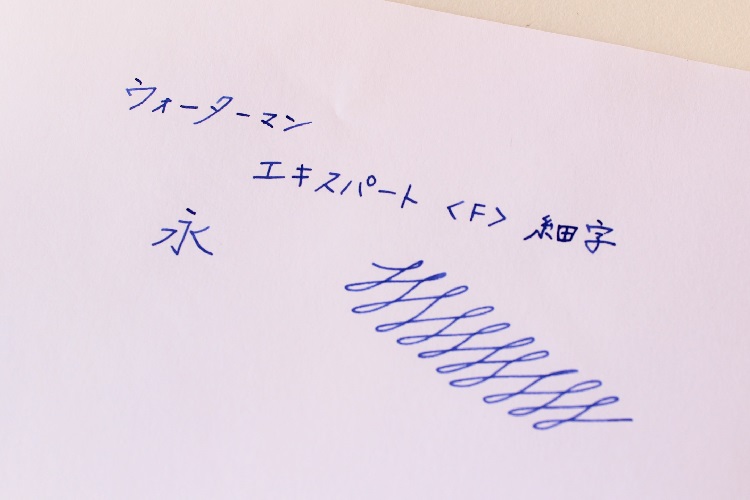 ウォーターマン
エキスパート <F> 細字
永